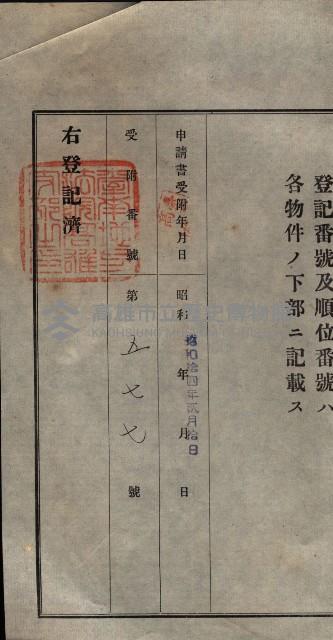 登記番號及順位番號ハ
各物件ノ下部ニ記載ス
申請書受附年月日 昭和 年 月 日
昭和拾四年貳月拾日
受附番號 第五七七號
右登記濟
高雄市立歷史博物館
KAOHSIUNG MUSEUM OF HISTORY